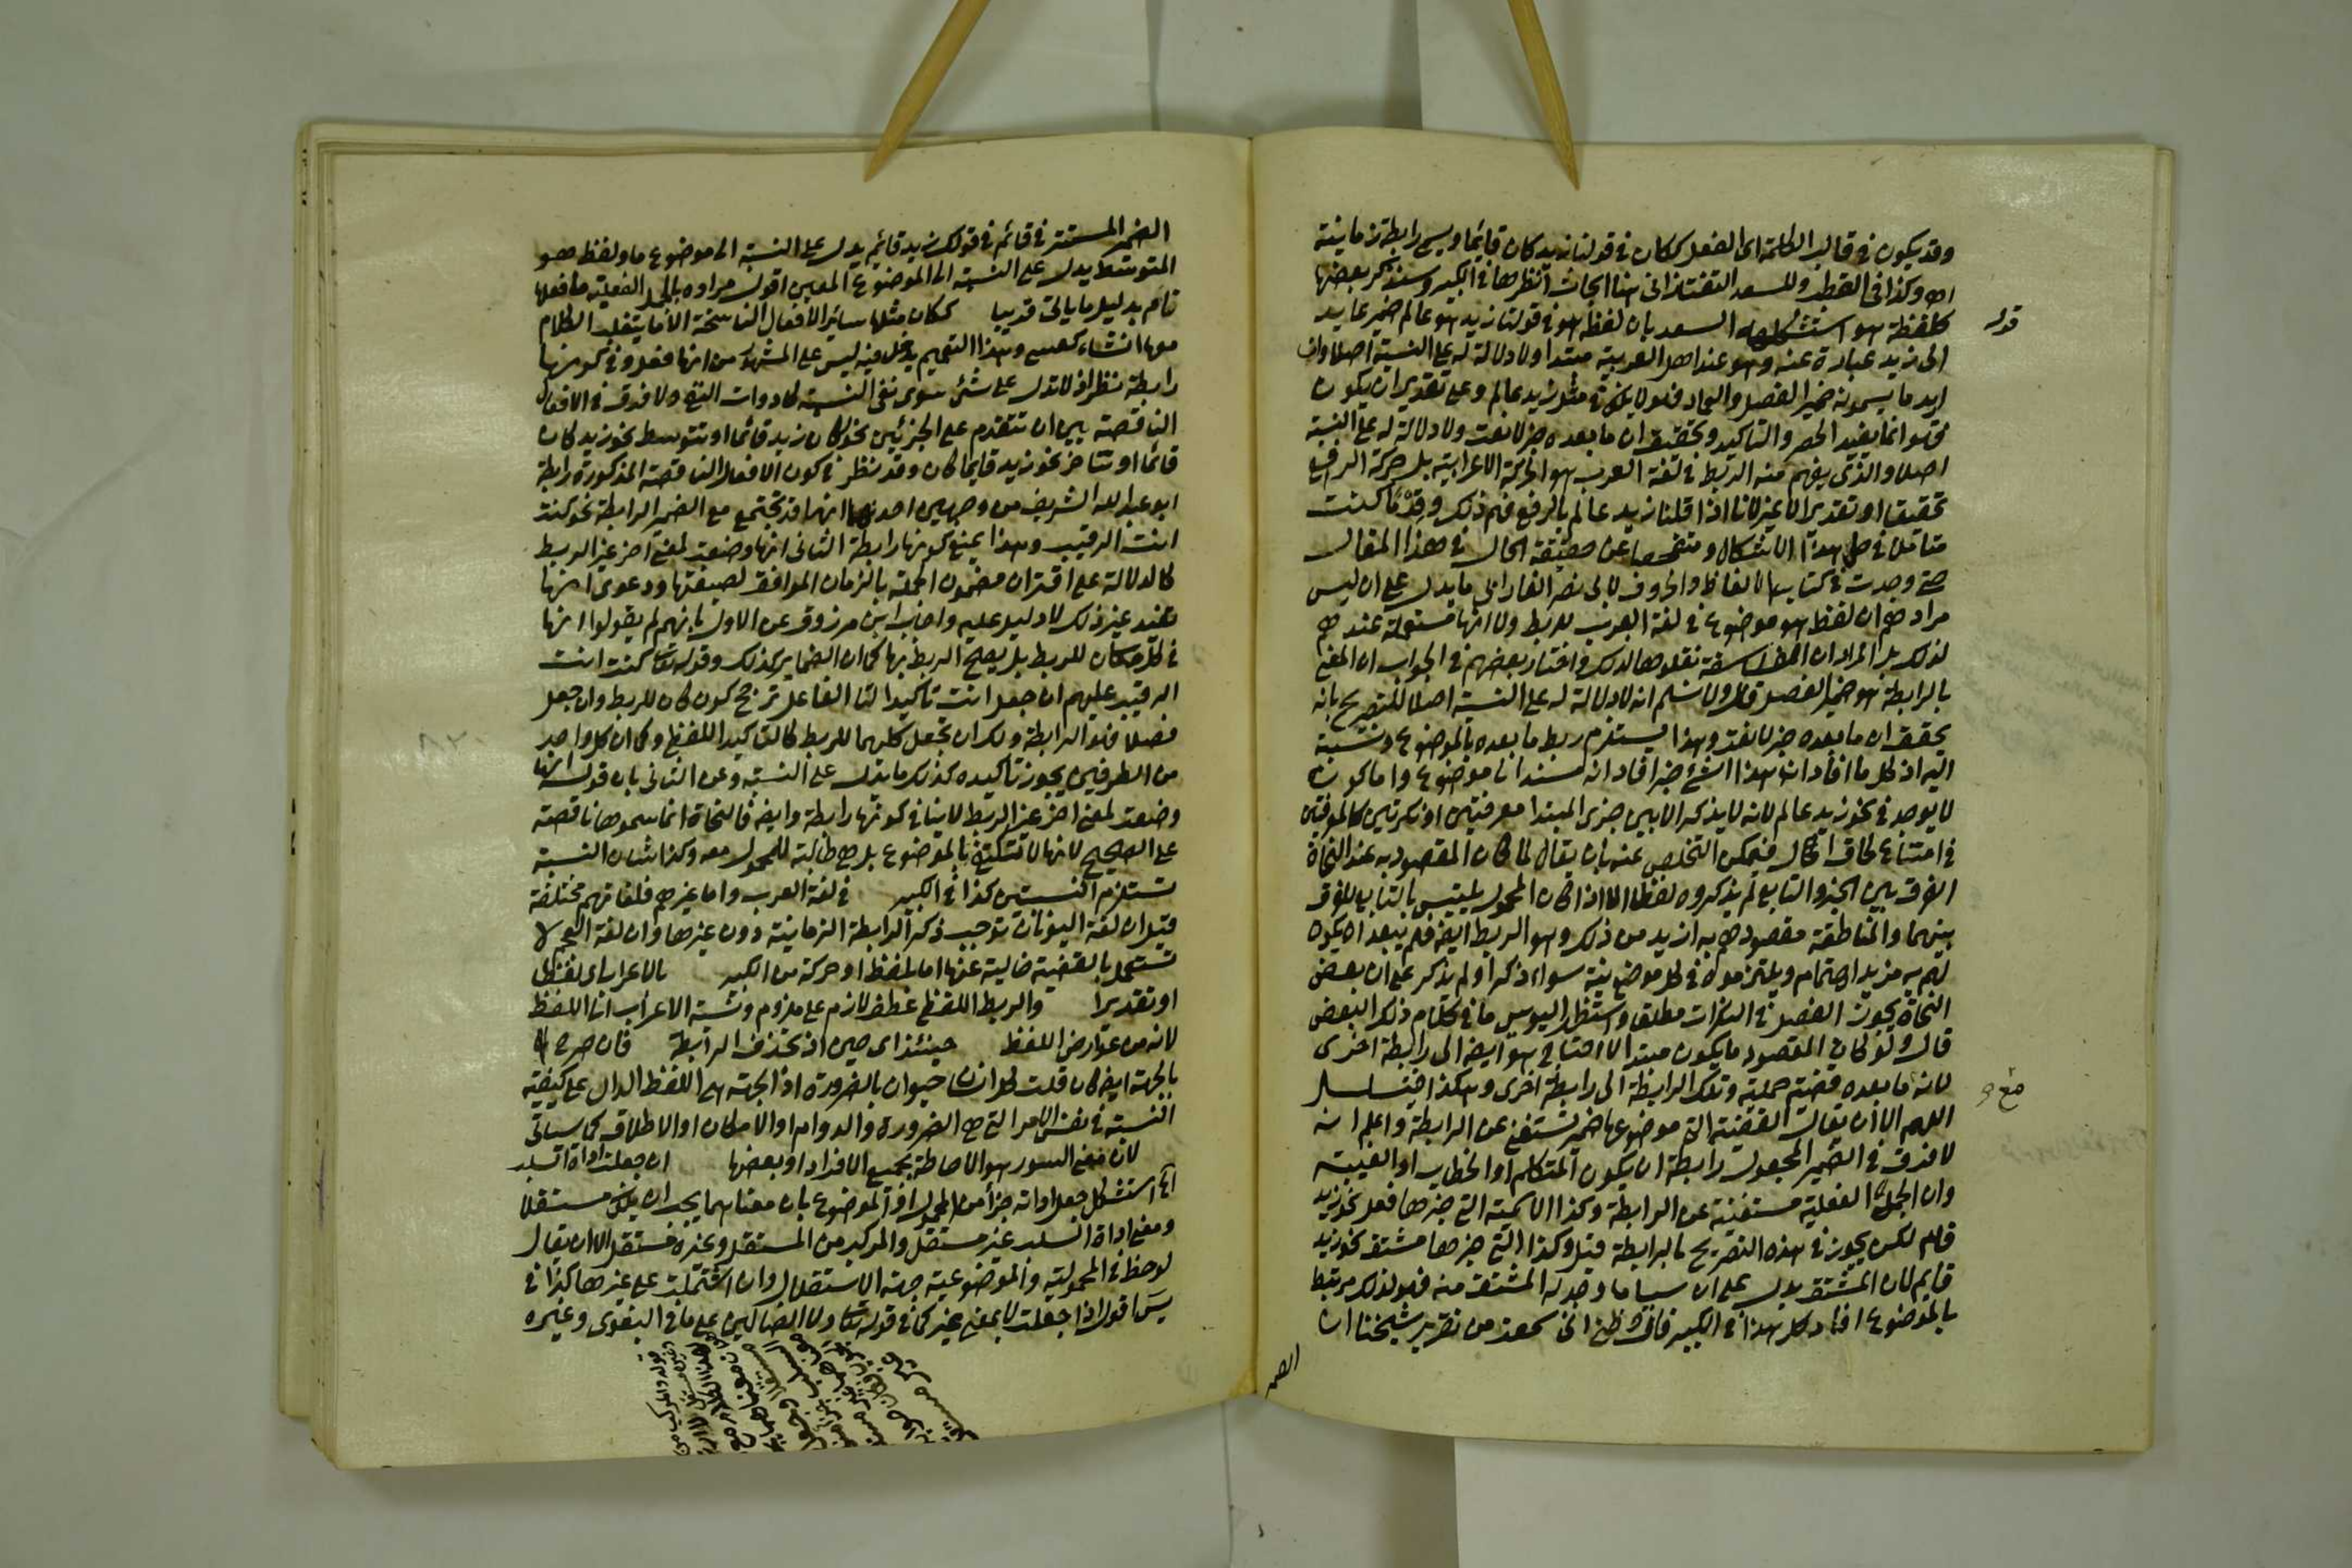 وقد يكون في قالب الكلمة اى الفعل ككان في قولنا زيد كان قايما ويسمى رابطة زمانية
اه وكذا في القطب وللسعد التفتازانى هنا ابحاث انظرها في الكبير وسنذكر بعضها
قوله
كلفظة هو استشكله السعد بان لفظ هو في قولنا زيد هو عالم ضمير عايد
الى زيد عبارة عنه وهو عند اهل العربية مبتدا ولا دلالة له على النسبة اصلا وان
اريد ما يسمونه ضمير الفصل والعماد فهو لا يكون في مثل زيد عالم وعلى تقدير ان يكون
فهو انما يفيد الحصر والتاكيد وتحقيق ان ما بعده خبر لا نعت ولا دلالة له على النسبة
اصلا والذى يفهم منه الربط في لغة العرب هو الحركة الاعرابية بل حركة الرفع
تحقيقا او تقديرا لا غير لانا اذا قلنا زيد عالم بالرفع فهم ذلك وقدما كنت
متاملا في حل هذا الاشكال ومتفحصا عن حقيقة الحال في هذا المقال
حتى وجدت في كتاب الالفاظ والحروف لابى نصر الفارابى ما يدل على ان ليس
مرادهم ان لفظ هو موضوع في لغة العرب للربط ولا انها مستعملة عندهم
لذلك بل المراد ان الفلاسفة نقلوها لذلك واختار بعضهم في الجواب ان المعنى
بالرابطة هو ضمير الفصل قال ولا نسلم انه لا دلالة له على النسبة اصلا للتصريح بانه
يحقق ان ما بعده خبر لا نعت وهذا يستلزم ربط ما بعده بالموضوع ونسبته
اليه اذ كل ما افاد ان هذا الشئ خبر افاد انه مسند الى موضوع واما كونه
لا يوجد في نحو زيد عالم لانه لا يذكر الا بين جزئ المبتدا معرفتين او نكرتين كالمعرفتين
في امتناع لحاق ال فيمكن التخلص عنه بان يقال لما كان المقصود به عند النحاة
الفرق بين الخبر والتابع لم يذكروه لفظا الا اذا كان المحمول يلتبس بالتابع للفرق
بينهما والمناطقة مقصودهم به ازيد من ذلك وهو الربط ايضا فلم يبعد ان يكون
لهم به مزيد اهتمام ويلتزمونه في كل موضع نية سواء ذكر او لم يذكر على ان بعض
النحاة يجوز الفصل في النكرات مطلقا واستظهر اليوسى ما في كلام ذلك البعض
قال ولو كان المقصود ما يكون مبتدا لاحتاج هو ايضا الى رابطة اخرى
لانه مع ما بعده قضية حملية وتلك الرابطة الى رابطة اخرى وهكذا فيتسلسل
اللهم الا ان يقال القضية التى موضوعها ضمير تستغنى عن الرابطة واعلم انه
لا فرق في الضمير المجعول رابطة ان يكون المتكلم او الخطاب او الغيبة
وان الجملة الفعلية مستغنية عن الرابطة وكذا الاسمية التى خبرها فعل نحو زيد
قام لكن يجوز في هذه التصريح بالرابطة قيل وكذا التى خبرها مشتق نحو زيد
قايم لان المشتق يدل على ان سببا ما وجد له المشتق منه فهو لذلك مرتبط
بالموضوع افاد كل هذا في الكبير قال وظنى انى سمعت من تقرير شيخنا ان
الضمير
الضمير المستتر في قائم في قولك زيد قائم يدل على النسبة الى موضوع ما ولفظ هو
المتوسط يدل على النسبة الى الموضوع المعين اقول مراده بالجمل الفعلية ما فعلها
تام بدليل ما ياتى قريبا ككان مثلها سائر الافعال الناسخة الا ما ينقلب الكلام
معها انشاء كعسى وهذا التعميم يدخل فيه ليس على المشهور من انها فعل وفي كونها
رابطة نظر اذ لا تدل على شئ سوى نفى النسبة كادوات النفى ولا فرق في الافعال
الناقصة بين ان تتقدم على الجزئين نحو كان زيد قائما او تتوسط نحو زيد كان
قائما او تتاخر نحو زيد قايما كان وقد نظر في كون الافعال الناقصة المذكورة رابطة
ابو عبد الله الشريف من وجهين احدهما انها قد تجتمع مع الضمير الرابطة نحو كنت
انت الرقيب وهذا يمنع كونها رابطة الثانى انها وضعت لمعنى اخر غير الربط
كالدلالة على اقتران مضمون الجملة بالزمان الموافق لصيغتها ودعوى انها
تفيد غير ذلك لا دليل عليه واجاب ابن مرزوق عن الاول بانهم لم يقولوا انها
في كل مكان للربط بل يصلح الربط بها كما ان الضماير كذلك وقوله تعالى كنت انت
الرقيب عليهم ان جعل انت تاكيدا لتا الفاعل ترجح كون كان للربط وان جعل
فصلا فهو الرابطة ولك ان تجعل كليهما للربط كالتاكيد اللفظى وكما ان كل واحد
من الطرفين يجوز تاكيده كذلك ما يدل على النسبة وعن الثانى بان قوله انها
وضعت لمعنى اخر غير الربط لا ينافي كونها رابطة وايضا فالنحاة انما سموها ناقصة
على الصحيح لانها لا تكتفى بالموضوع بل هى طالبة للمحمول معه وكذا شان النسبة
تستلزم المنتسبين كذا في الكبير في لغة العرب واما غيرهم فلغاتهم مختلفة
قيل ان لغة اليونان توجب ذكر الرابطة الزمانية دون غيرها وان لغة العجم لا
تستعمل القضية خالية عنها اما بلفظ او حركة من الكبير بالاعراب اى لفظا
او تقديرا والربط اللفظى عطف لازم على ملزوم ونسبة الاعراب الى اللفظ
لانه من عوارض اللفظ حينئذ اى حين اذ تحذف الرابطة فان صرح
بالجهة ايضا كان قلت كل انسان حيوان بالضرورة اذ الجهة هى اللفظ الدال على كيفية
النسبة في نفس الامر التى هى الضرورة والدوام او الامكان او الاطلاق كما سياتى
لان معنى السور هو الاحاطة بجميع الافراد او بعضها ان جعلت اداة السلب
اه استشكل جعل اداته جزأ من المحمول او الموضوع بان معناهما يجب ان يكون مستقلا
ومعنى اداة السلب غير مستقل والمركب من المستقل وغيره غير مستقل الا ان يقال
لوحظ في المحمولية والموضوعية جهة الاستقلال وان اشتملت على غيرها كذا في
يس اقول اذا جعلت لا بمعنى غير كما في قوله تعالى ولا الضالين على ما في البغوى وغيره